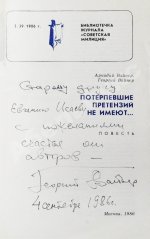 1 (39) 1986 г.
БИБЛИОТЕЧКА
ЖУРНАЛА
«СОВЕТСКАЯ
МИЛИЦИЯ»
Аркадий Вайнер,
Георгий Вайнер
Старому другу
Евгению
ПОТЕРПЕВШИЕ
с пожеланиями
ПРЕТЕНЗИЙ
НЕ ИМЕЮТ...
счастья от
ПОВЕСТЬ
авторов —
Георгий Вайнер
4 сентября 1986г.
Москва, 1986